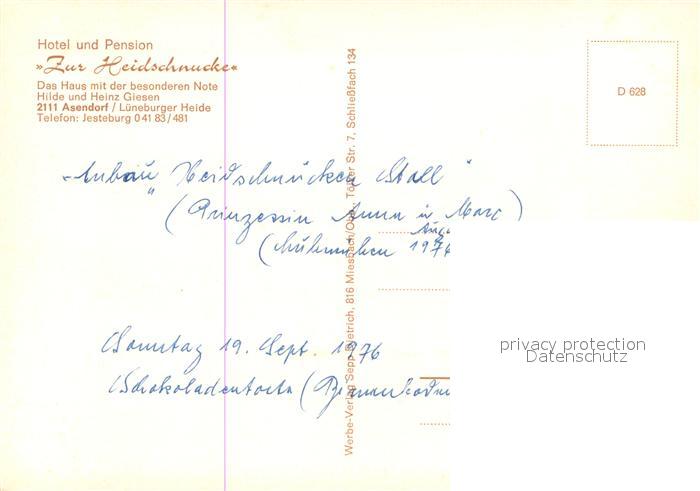 Hotel und Pension
»Zur Heidschnucke«
Das Haus mit der besonderen Note
Hilde und Heinz Giesen
2111 Asendorf / Lüneburger Heide
Telefon: Jesteburg 0 41 83 / 481
D 628
Werbe-Verlag Sepp Dietrich, 816 Miesbach/Obb., Tölzer Str. 7, Schließfach 134
"Anbau Heidschnucken Stall"
(Prinzessin Anna u Marc)
1976
Sonntag 19. Sept. 1976
Schokoladentorte (
privacy protection
Datenschutz